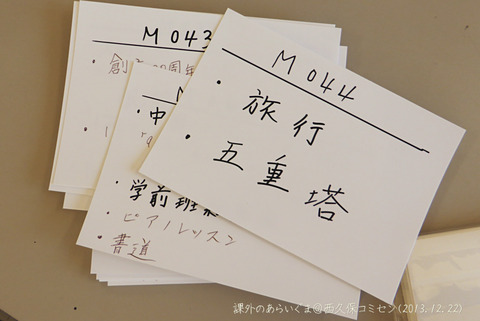 M043
・創
周年
M044
・旅行
・五重塔
・中
・学前班
・ピアノレッスン
・書道
課外のあらいぐま@西久保コミセン(2013.12.22)